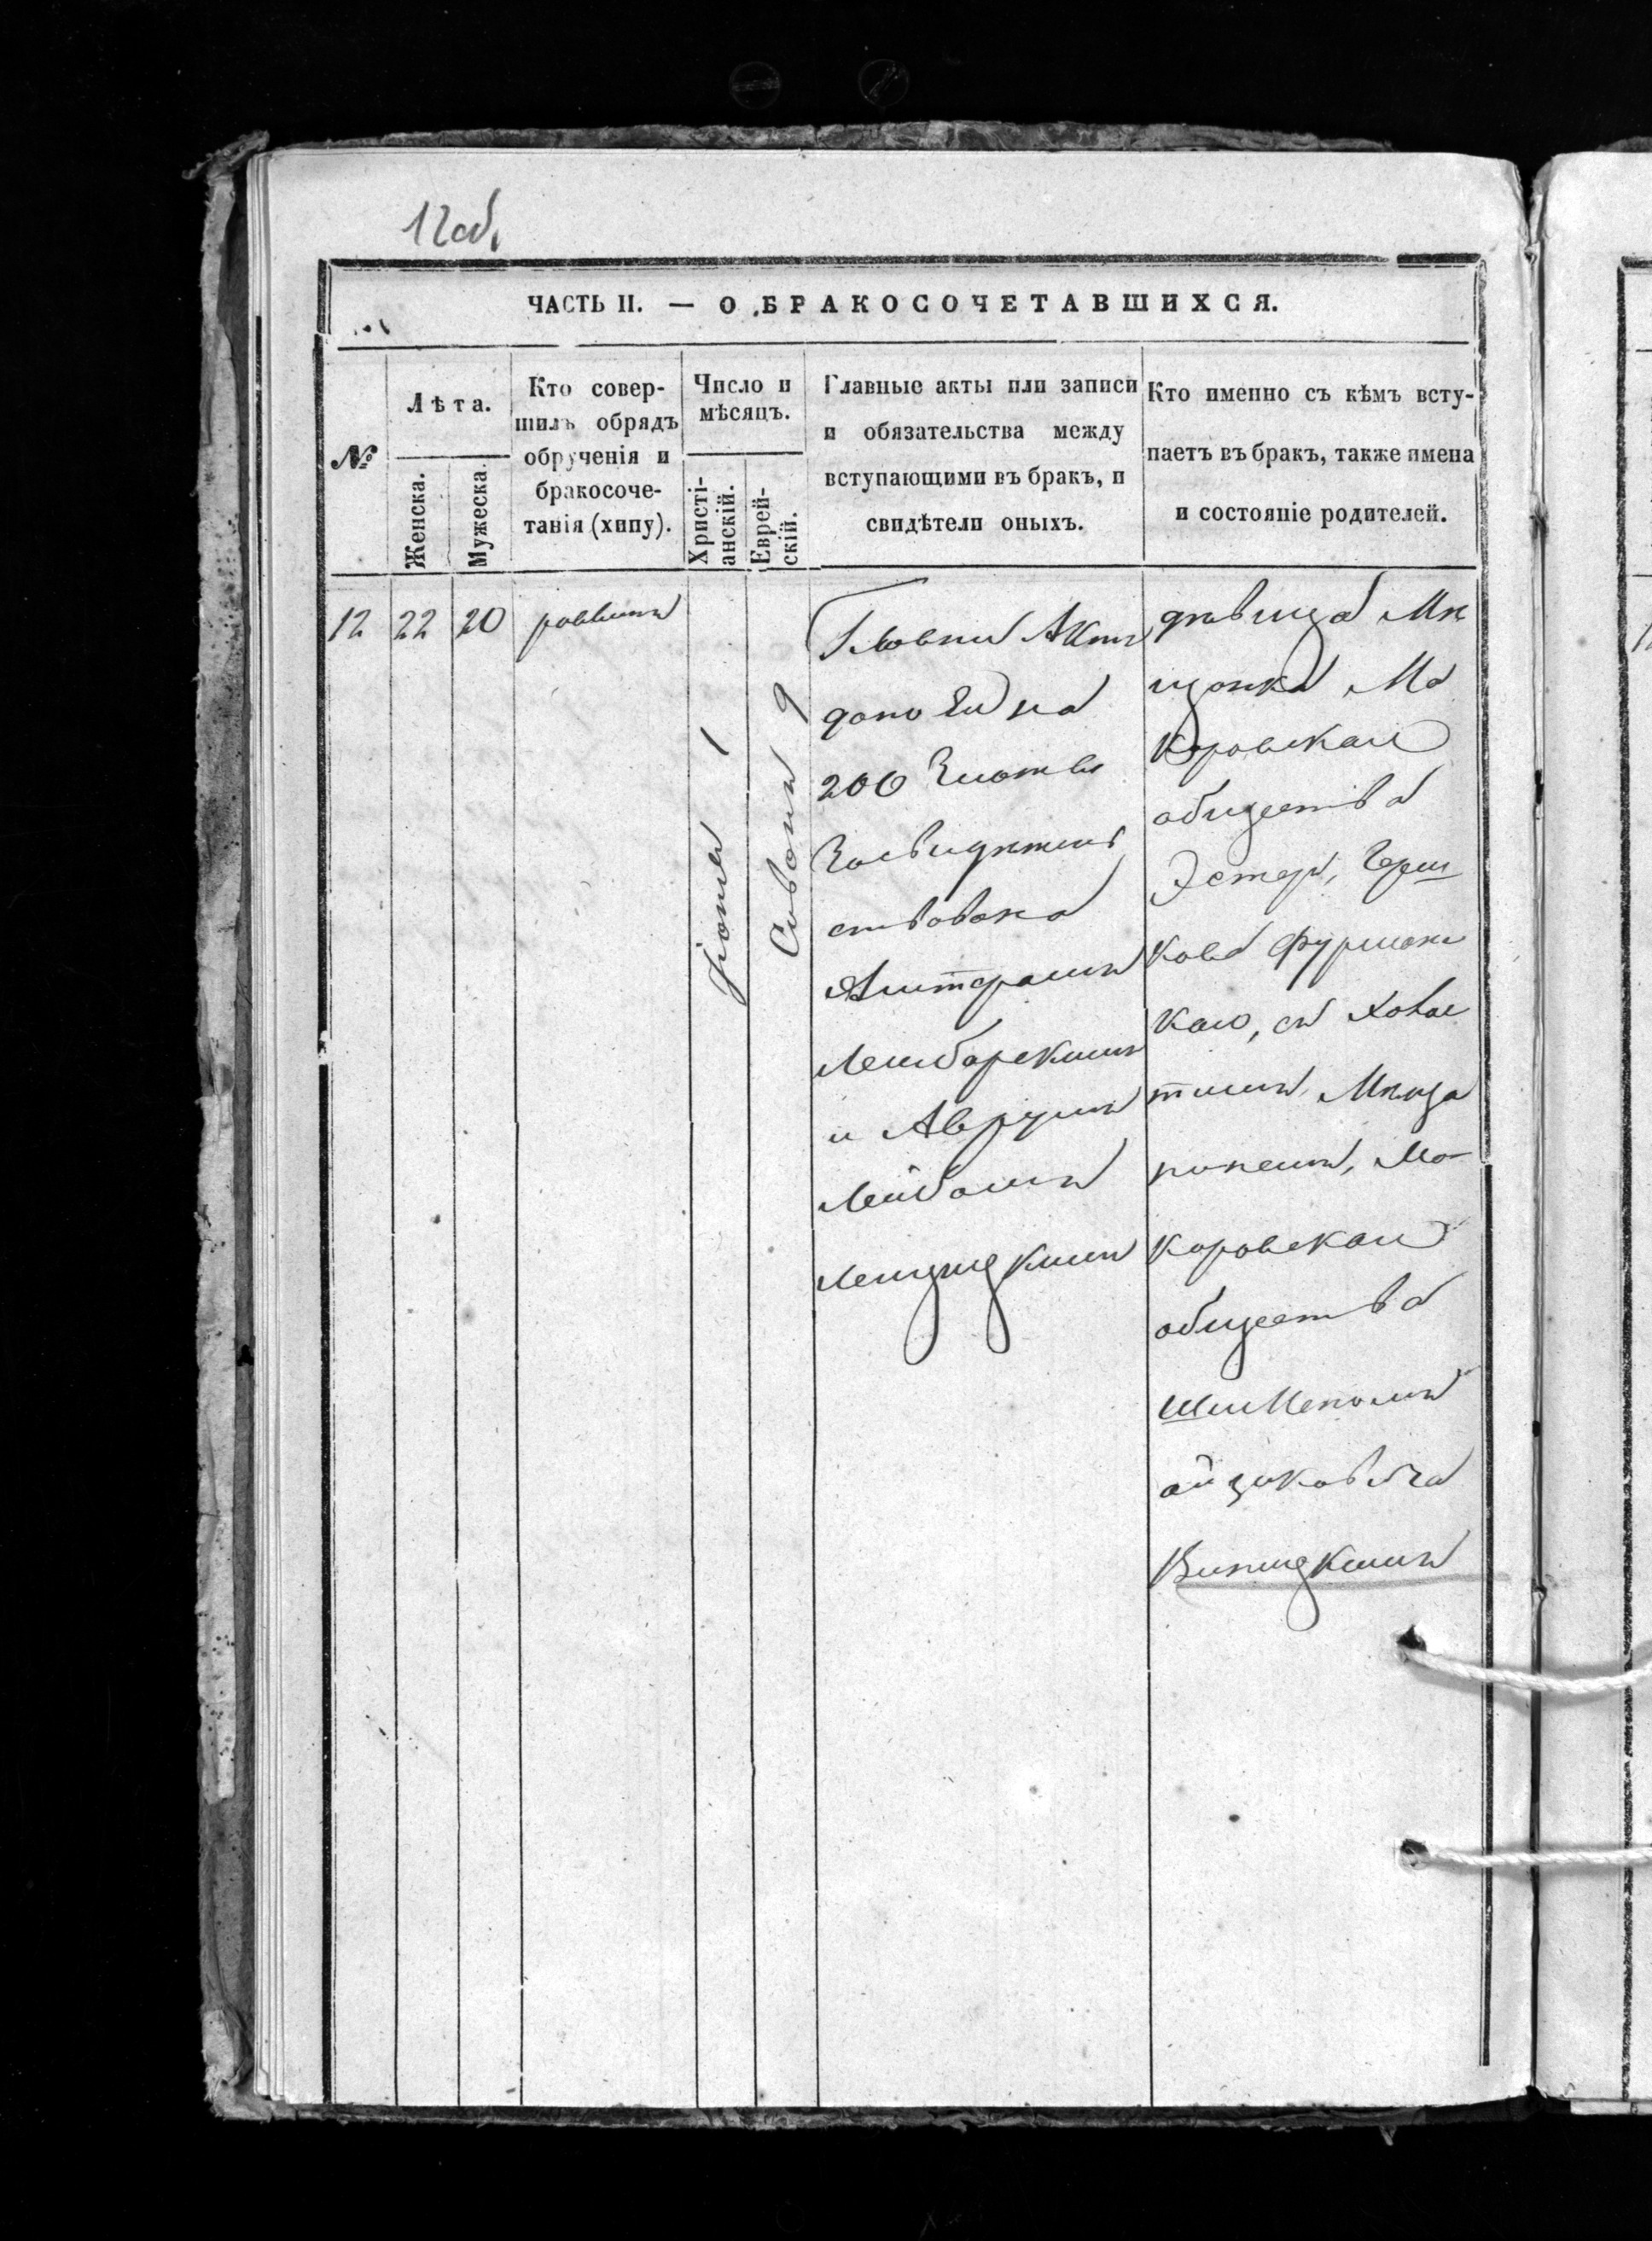 12 об.
ЧАСТЬ II. — О БРАКОСОЧЕТАВШИХСЯ.
№
Лѣта.
Женска.
Мужеска.
Кто совер-
шилъ обрядъ
обрученія и
бракосоче-
танія (хипу).
Число и
мѣсяцъ.
Христі-
анскій.
Еврей-
скій.
Главные акты или записи
и обязательства между
вступающими въ бракъ, и
свидѣтели оныхъ.
Кто именно съ кѣмъ всту-
паетъ въ бракъ, также имена
и состояніе родителей.
12 22 20 раввинъ
Іюня 1
Сивонъ 9
Главни Актъ
дано Ей на
200 Злотыъ
Засвидѣтель
ствована
Лейбарскимъ
и Аврумъ
Лейбомъ
дѣвица Мѣ
щанка Ма
каровскаго
общества
Эстеръ, Герш
кова Фурман
каго, съ Холос
тимъ, Мѣща
ниномъ, Ма-
каровскаго
общества
айзиковича
Виницкимъ